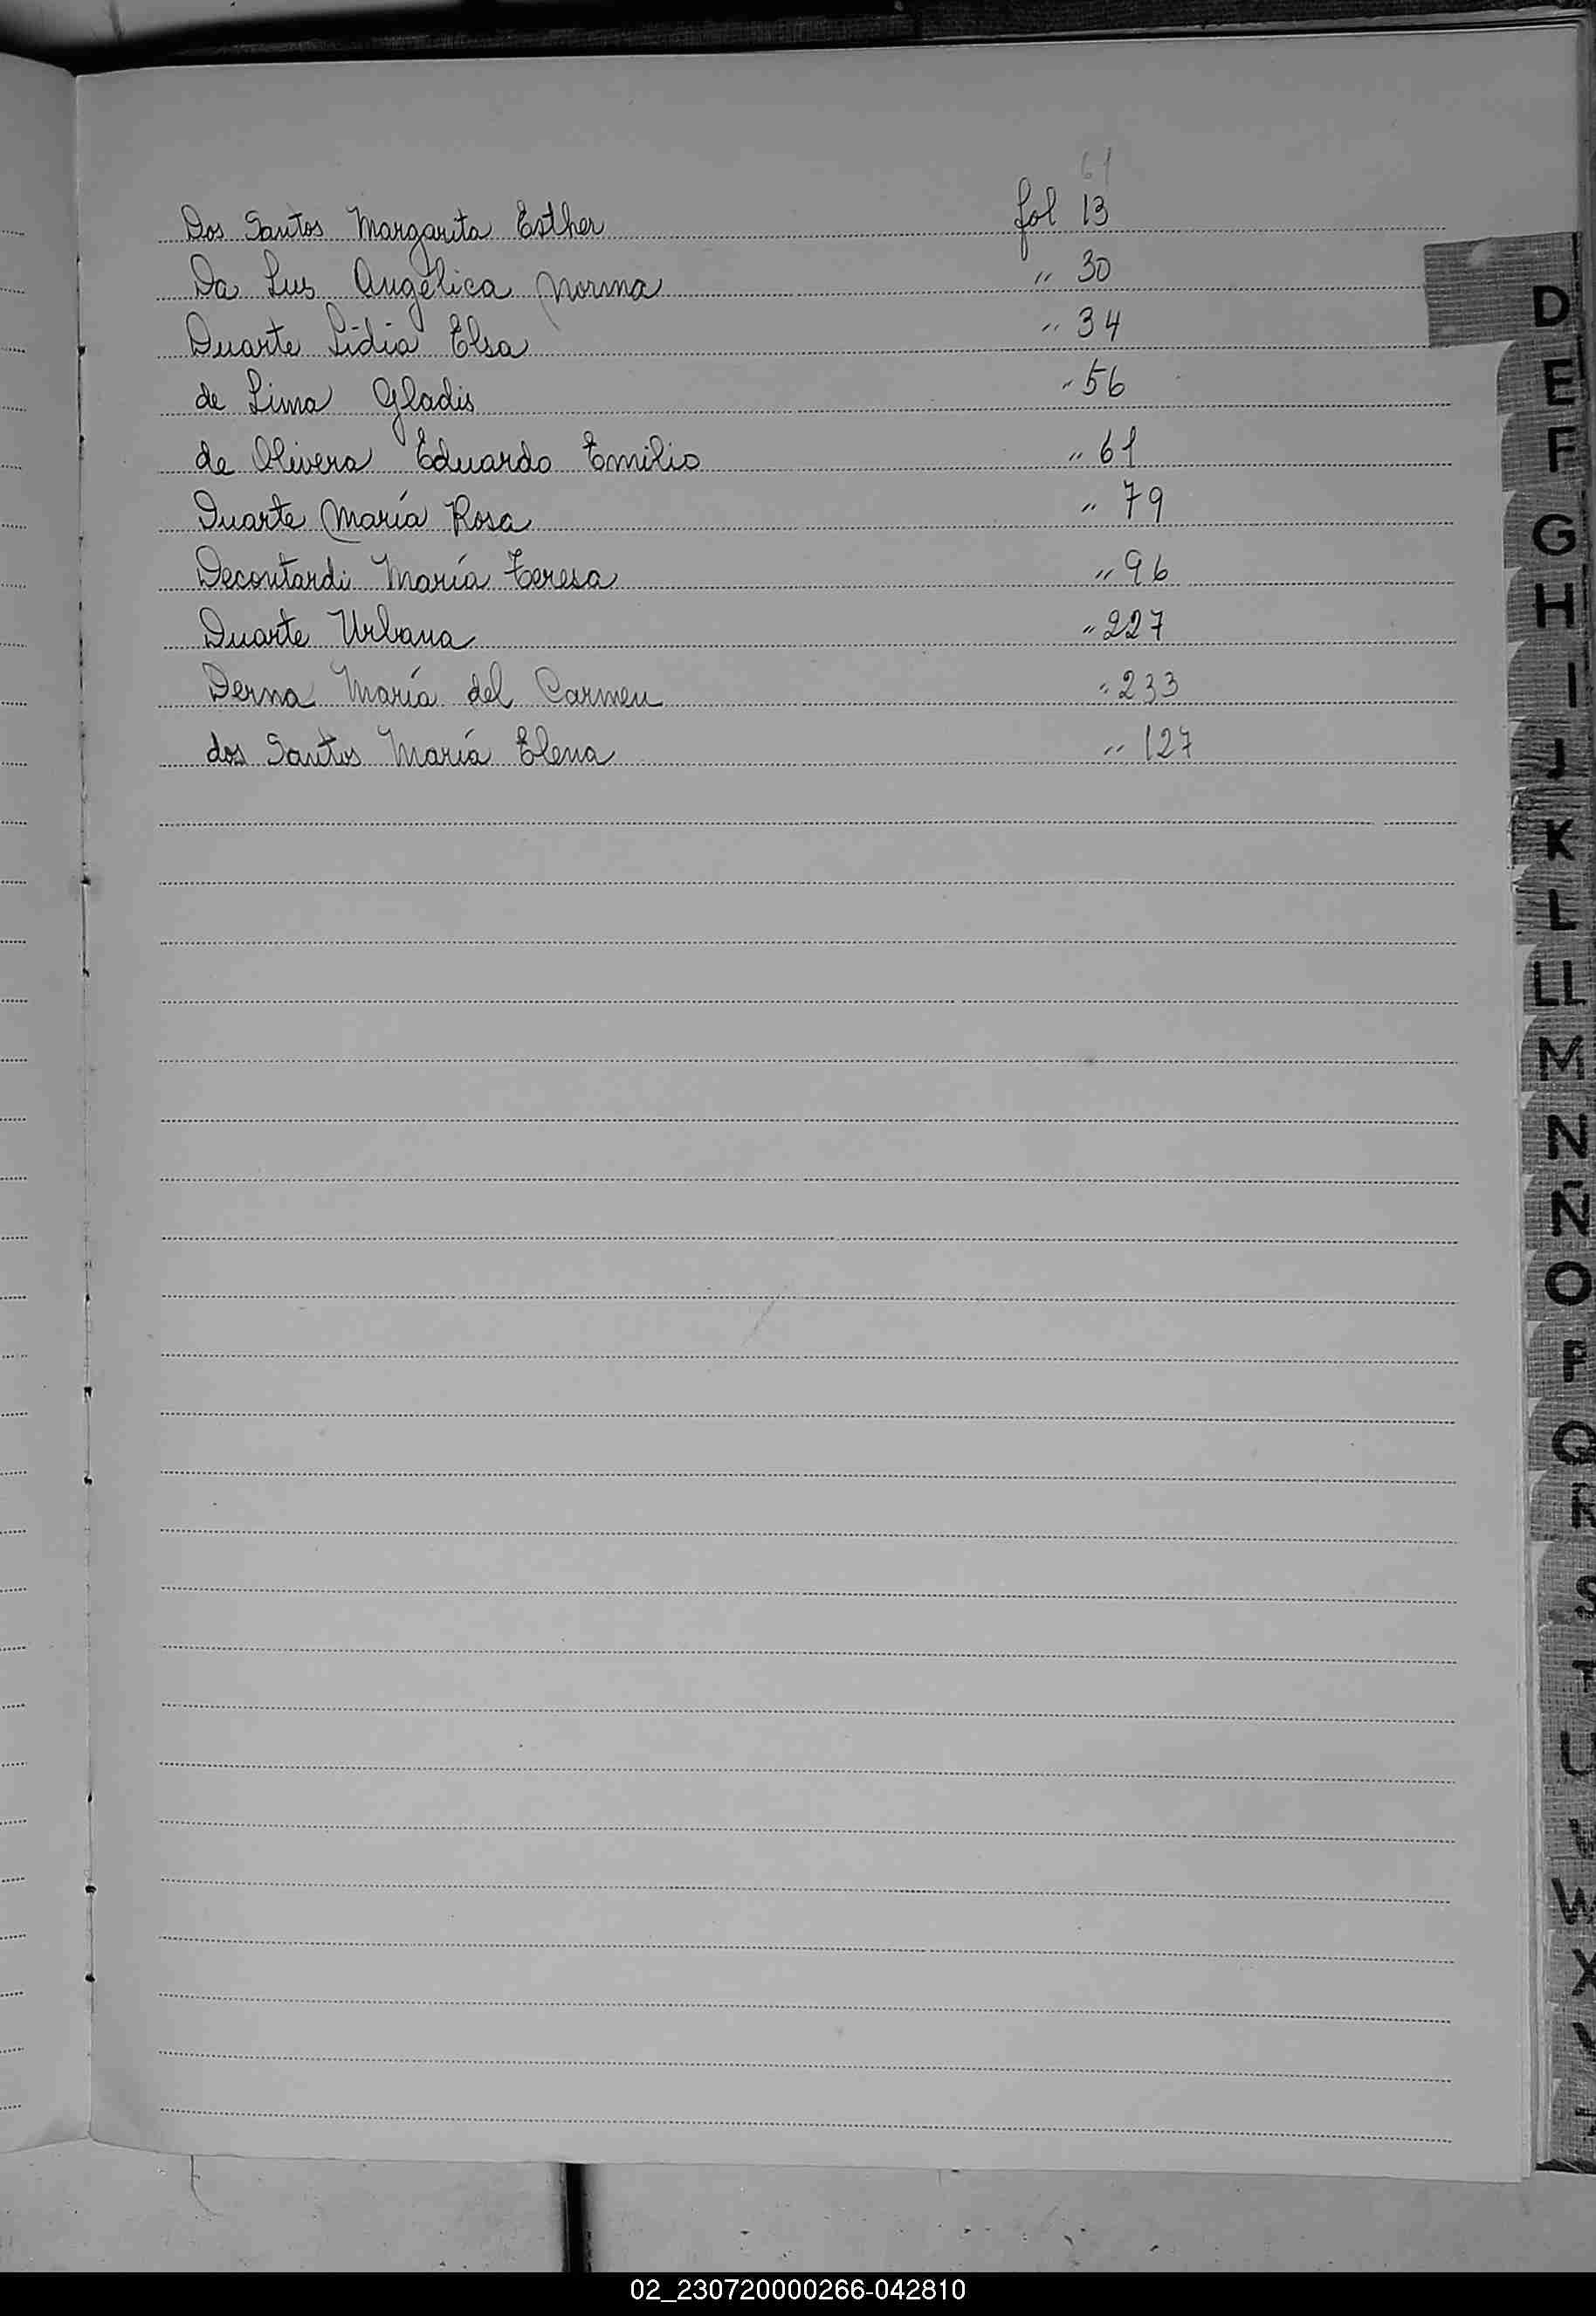 61
Dos Santos Margarita Esther fol 13
Da Lus Angélica Norma " 30
Duarte Lidia Elsa " 34
de Lima Gladis " 56
de Olivera Eduardo Emilio " 61
Duarte María Rosa " 79
Decontardi María Teresa " 96
Duarte Urbana " 227
Derna María del Carmen " 233
dos Santos María Elena " 127
D
E
F
G
H
I
J
K
L
LL
M
N
Ñ
O
P
Q
R
S
T
U
V
W
X
02_230720000266-042810